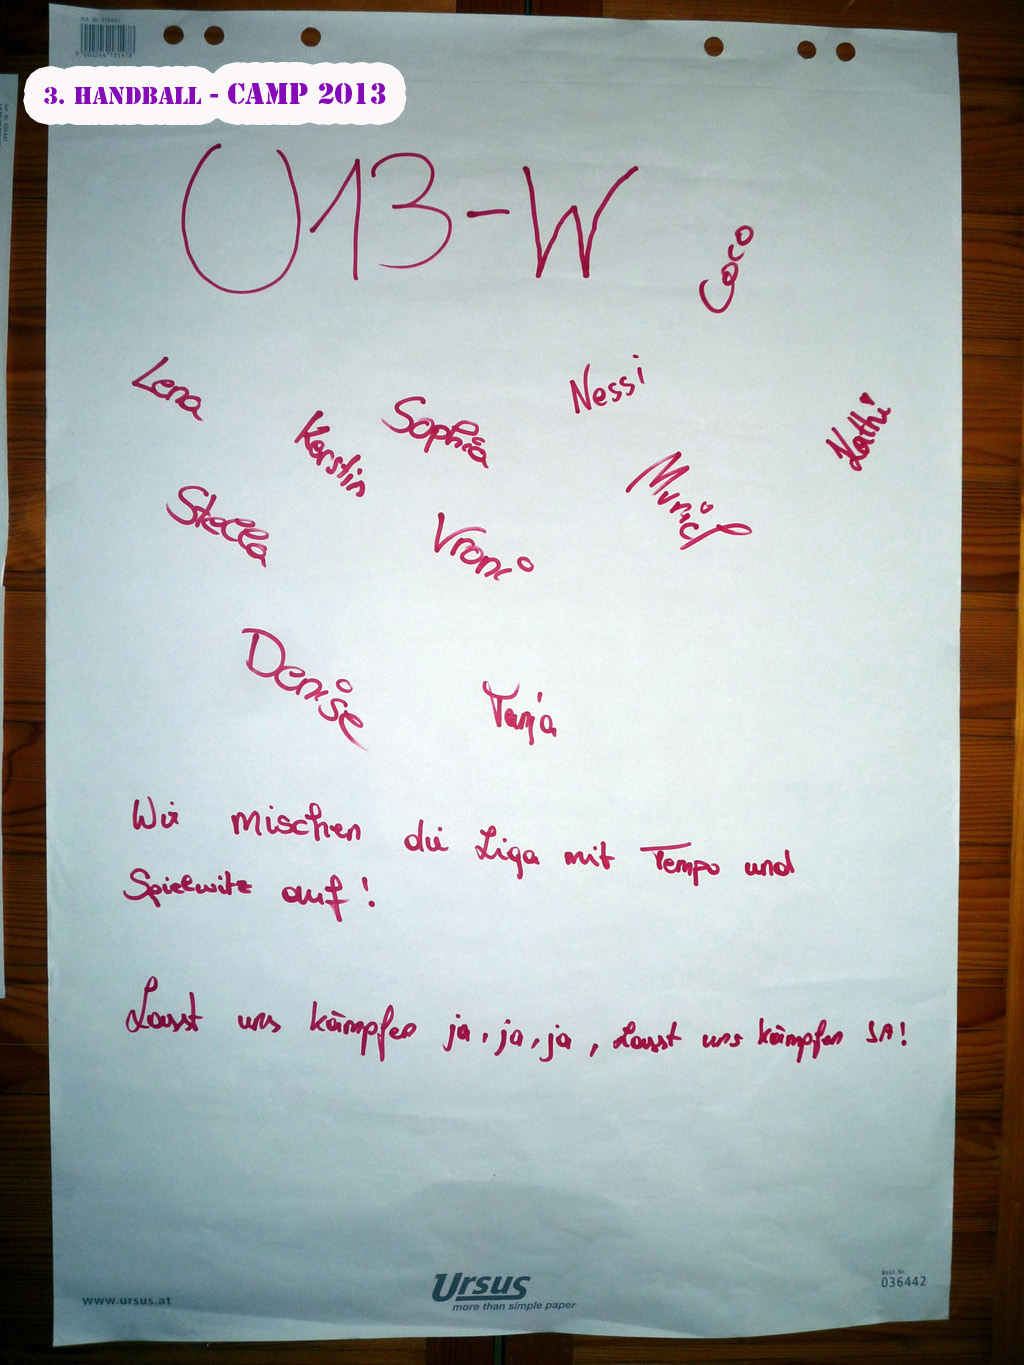 Art. Nr. 036442
9 002244 181478
3. HANDBALL - CAMP 2013
U13-W
Coco
Lena
Kerstin
Sophia
Nessi
Kathi
Stella
Vroni
Denise
Tanja
Wir mischen die Liga mit Tempo und
Spielwitz auf!
Lasst uns kämpfen ja, ja, ja, Lasst uns kämpfen JA!
www.ursus.at
Ursus
more than simple paper
Best. Nr.
036442